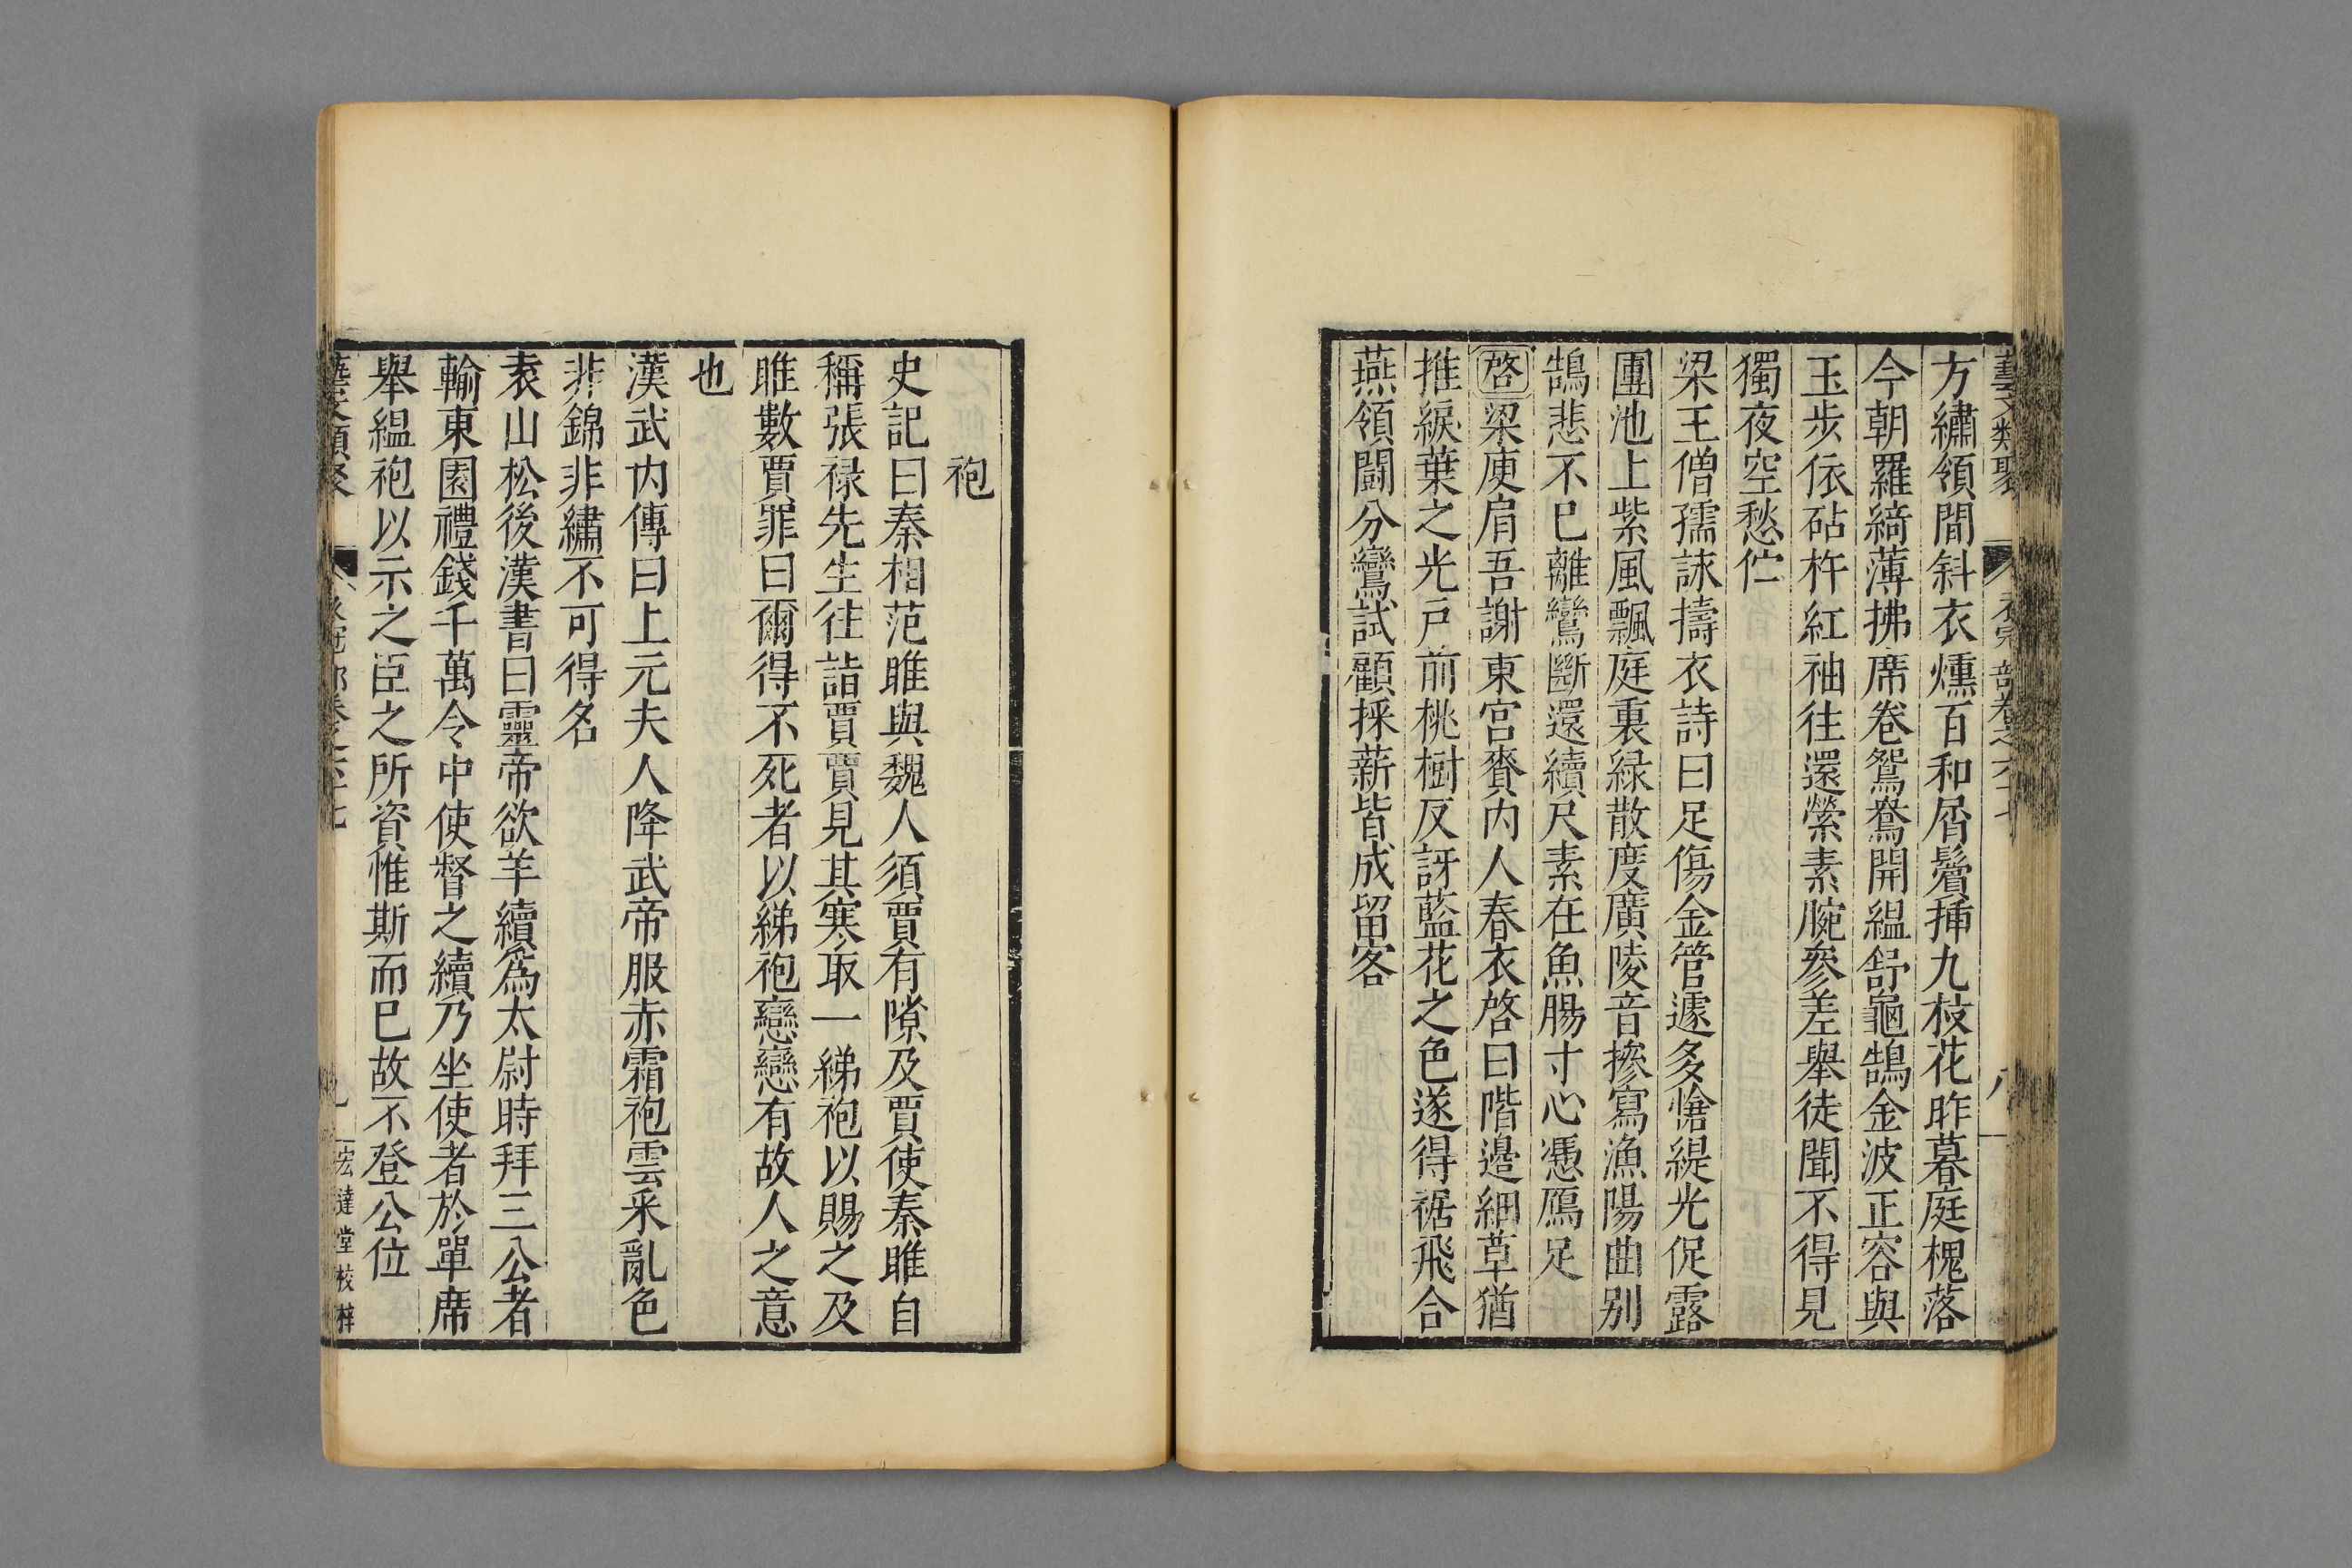 藝文類聚 衣冠部卷之六十七 八
方繡領間斜衣燻百和屑鬢揷九枝花昨暮庭槐落
今朝羅綺薄拂席卷鴛鴦開縕舒龜鵠金波正容與
玉步依砧杵紅袖往還縈素腕參差舉徒聞不得見
獨夜空愁伫
梁王僧孺詠擣衣詩曰足傷金管遽多愴緹光促露
團池上紫風飄庭裏綠散度廣陵音摻寫漁陽曲别
鵠悲不已離鸞斷還續尺素在魚腸寸心憑鴈足
啓梁庾肩吾謝東宮賚内人春衣啓曰階邉細草猶
推綟葉之光戶前桃樹反訝藍花之色遂得裾飛合
燕領鬪分鸞試顧採薪皆成留客
袍
史記曰秦相范睢與魏人須賈有隙及賈使秦睢自
稱張禄先生往詣賈賈見其寒取一綈袍以賜之及
睢數賈罪曰爾得不死者以綈袍戀戀有故人之意
也
漢武内傳曰上元夫人降武帝服赤霜袍雲采亂色
非錦非繡不可得名
袁山松後漢書曰靈帝欲羊續爲太尉時拜三公者
輸東園禮錢千萬令中使督之續乃坐使者於單席
舉縕袍以示之臣之所資惟斯而已故不登公位
藝文類聚 衣冠部卷之六十七 九 宏達堂校梓